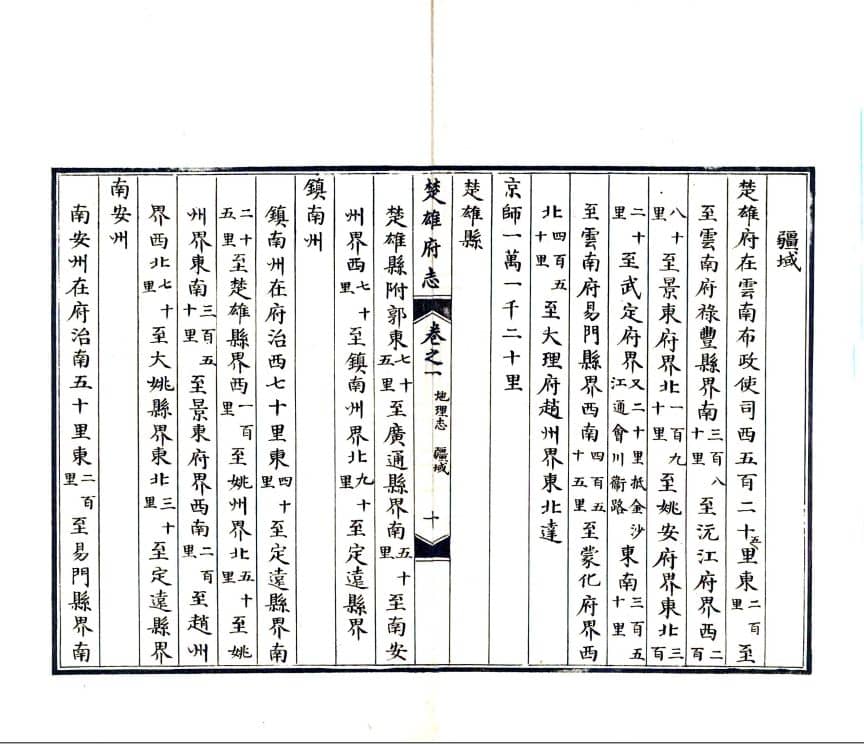 疆域
楚雄府在雲南布政使司西五百二十五里東二百里至
至雲南府祿豐縣界南三百八十里至沅江府界西二百
八十里至景東府界北一百九十里至姚安府界東北三百
二十里至武定府界又二十里抵金沙江通會川衞路東南三百五十里
至雲南府易門縣界西南四百五十五里至蒙化府界西
北四百五十里至大理府趙州界東北達
京師一萬一千二十里
楚雄縣
楚雄府志 卷之一 地理志 疆域 十
楚雄縣附郭東七十五里至廣通縣界南五十里至南安
州界西七十里至鎮南州界北九十里至定遠縣界
鎮南州
鎮南州在府治西七十里東四十里至定遠縣界南
二十五里至楚雄縣界西一百里至姚州界北五十里至姚
州界東南三百五十里至景東府界西南二百里至趙州
界西北七十里至大姚縣界東北三十里至定遠縣界
南安州
南安州在府治南五十里東二百里至易門縣界南